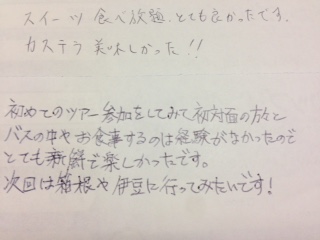 スイーツ 食べ放題、とても良かったです.
カステラ 美味しかった!!
初めてのツアー参加をしてみて初対面の方と
バスの中やお食事するのは経験がなかったので
とても新鮮で楽しかったです。
次回は箱根や伊豆に行ってみたいです!